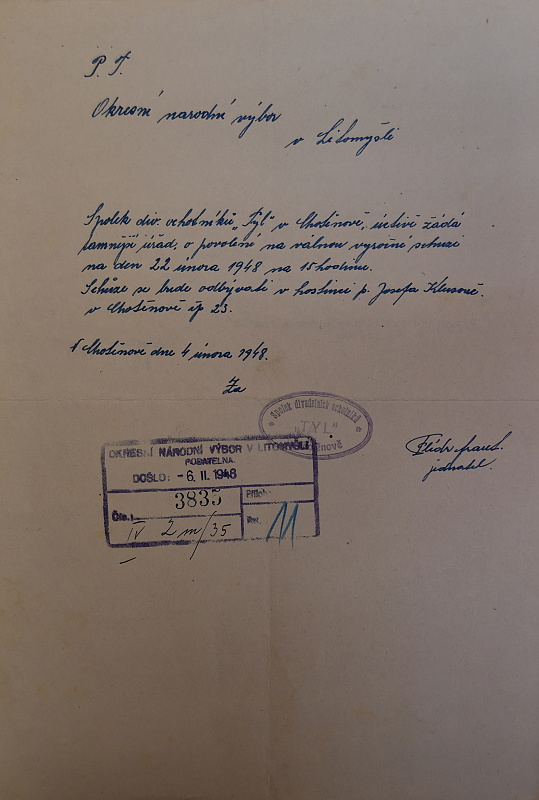 P. T.
Okresní národní výbor
v Litomyšli
Spolek div. ochotníků „Tyl" v Chotěnově, uctivě žádá
tamnější úřad, o povolení na válnou vyroční schuzi
na den 22 února 1948 na 15 hodinu.
Schůze se bude odbývati v hostinci p. Josefa
v Chotěnově čp 23.
V Chotěnově dne 4 února 1948.
Za
Spolek divadelních ochotníků
"TYL"
OKRESNÍ NÁRODNÍ VÝBOR V LITOMYŠLI
PODATELNA.
DOŠLO: - 6. II. 1948
Čís.: 3835
IV 2 m/35
11
jednatel.